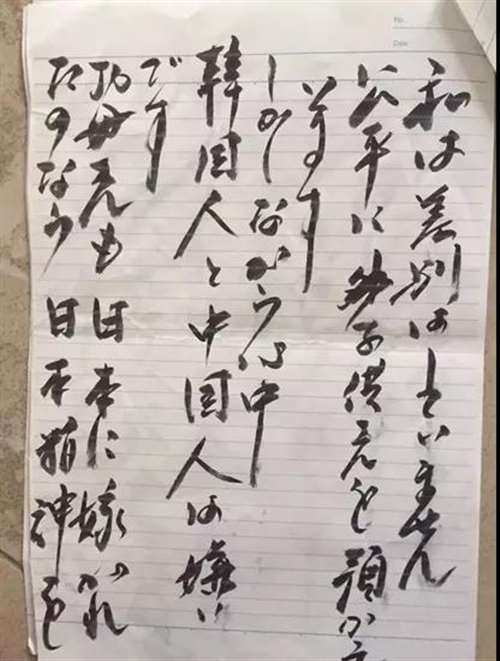 No.
Date
私は差別はしていません
公平にお子供さんを預かって
います
しかしながら心中
韓国人と中国人は嫌い
です
お母さんも日本に嫁がれ
たのなら日本精神を